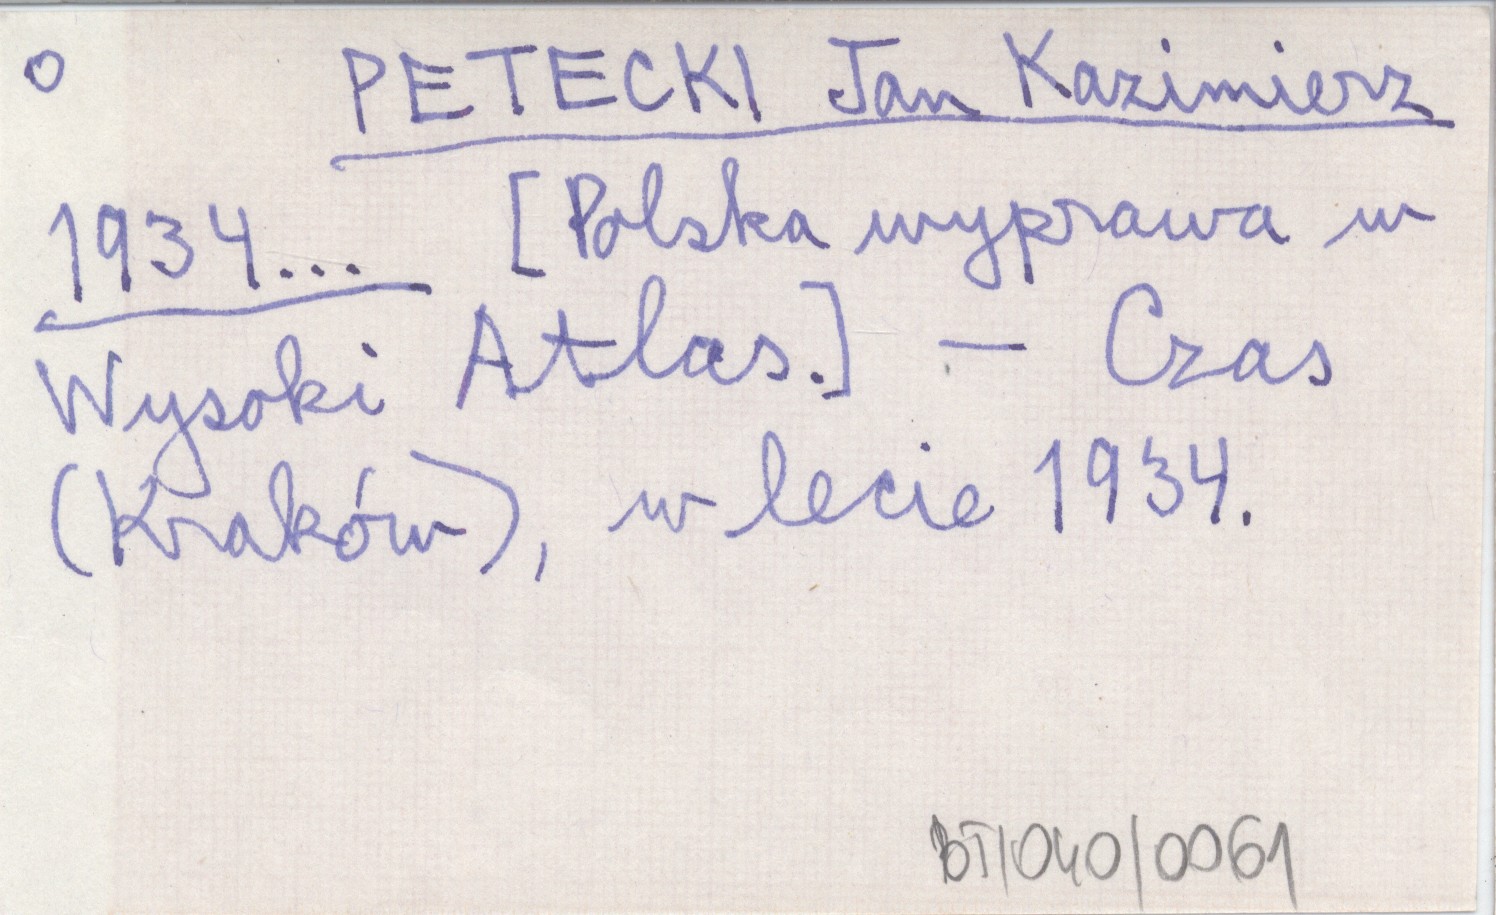 o PETECKI Jan Kazimierz
1934... [Polska wyprawa w
Wysoki Atlas.] — Czas
(Kraków), w lecie 1934.
BT/040/0061